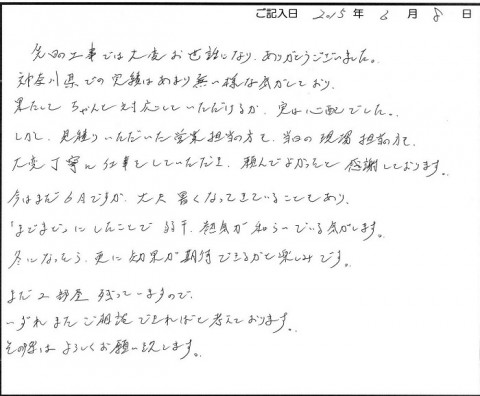 ご記入日 2015 年 6 月 8 日
先日の工事では大変お世話になり、ありがとうございました。
神奈川県での実績はあまり無い様な気がしており、
果たして ちゃんと対応していただけるか、実は心配でした。
しかし、見積りいただいた営業担当の方も、当日の現場担当の方も、
大変丁寧に仕事をしていただき、頼んでよかったと感謝しております。
今はまだ6月ですが、大分暑くなってきていることもあり、
「まどまど」にしたことで若干、熱気が和らいでいる気がします。
冬になったら、更に効果が期待できるかと楽しみです。
まだ2部屋残っていますので、
いずれまたご相談できればと考えております。
その際はよろしくお願い致します。